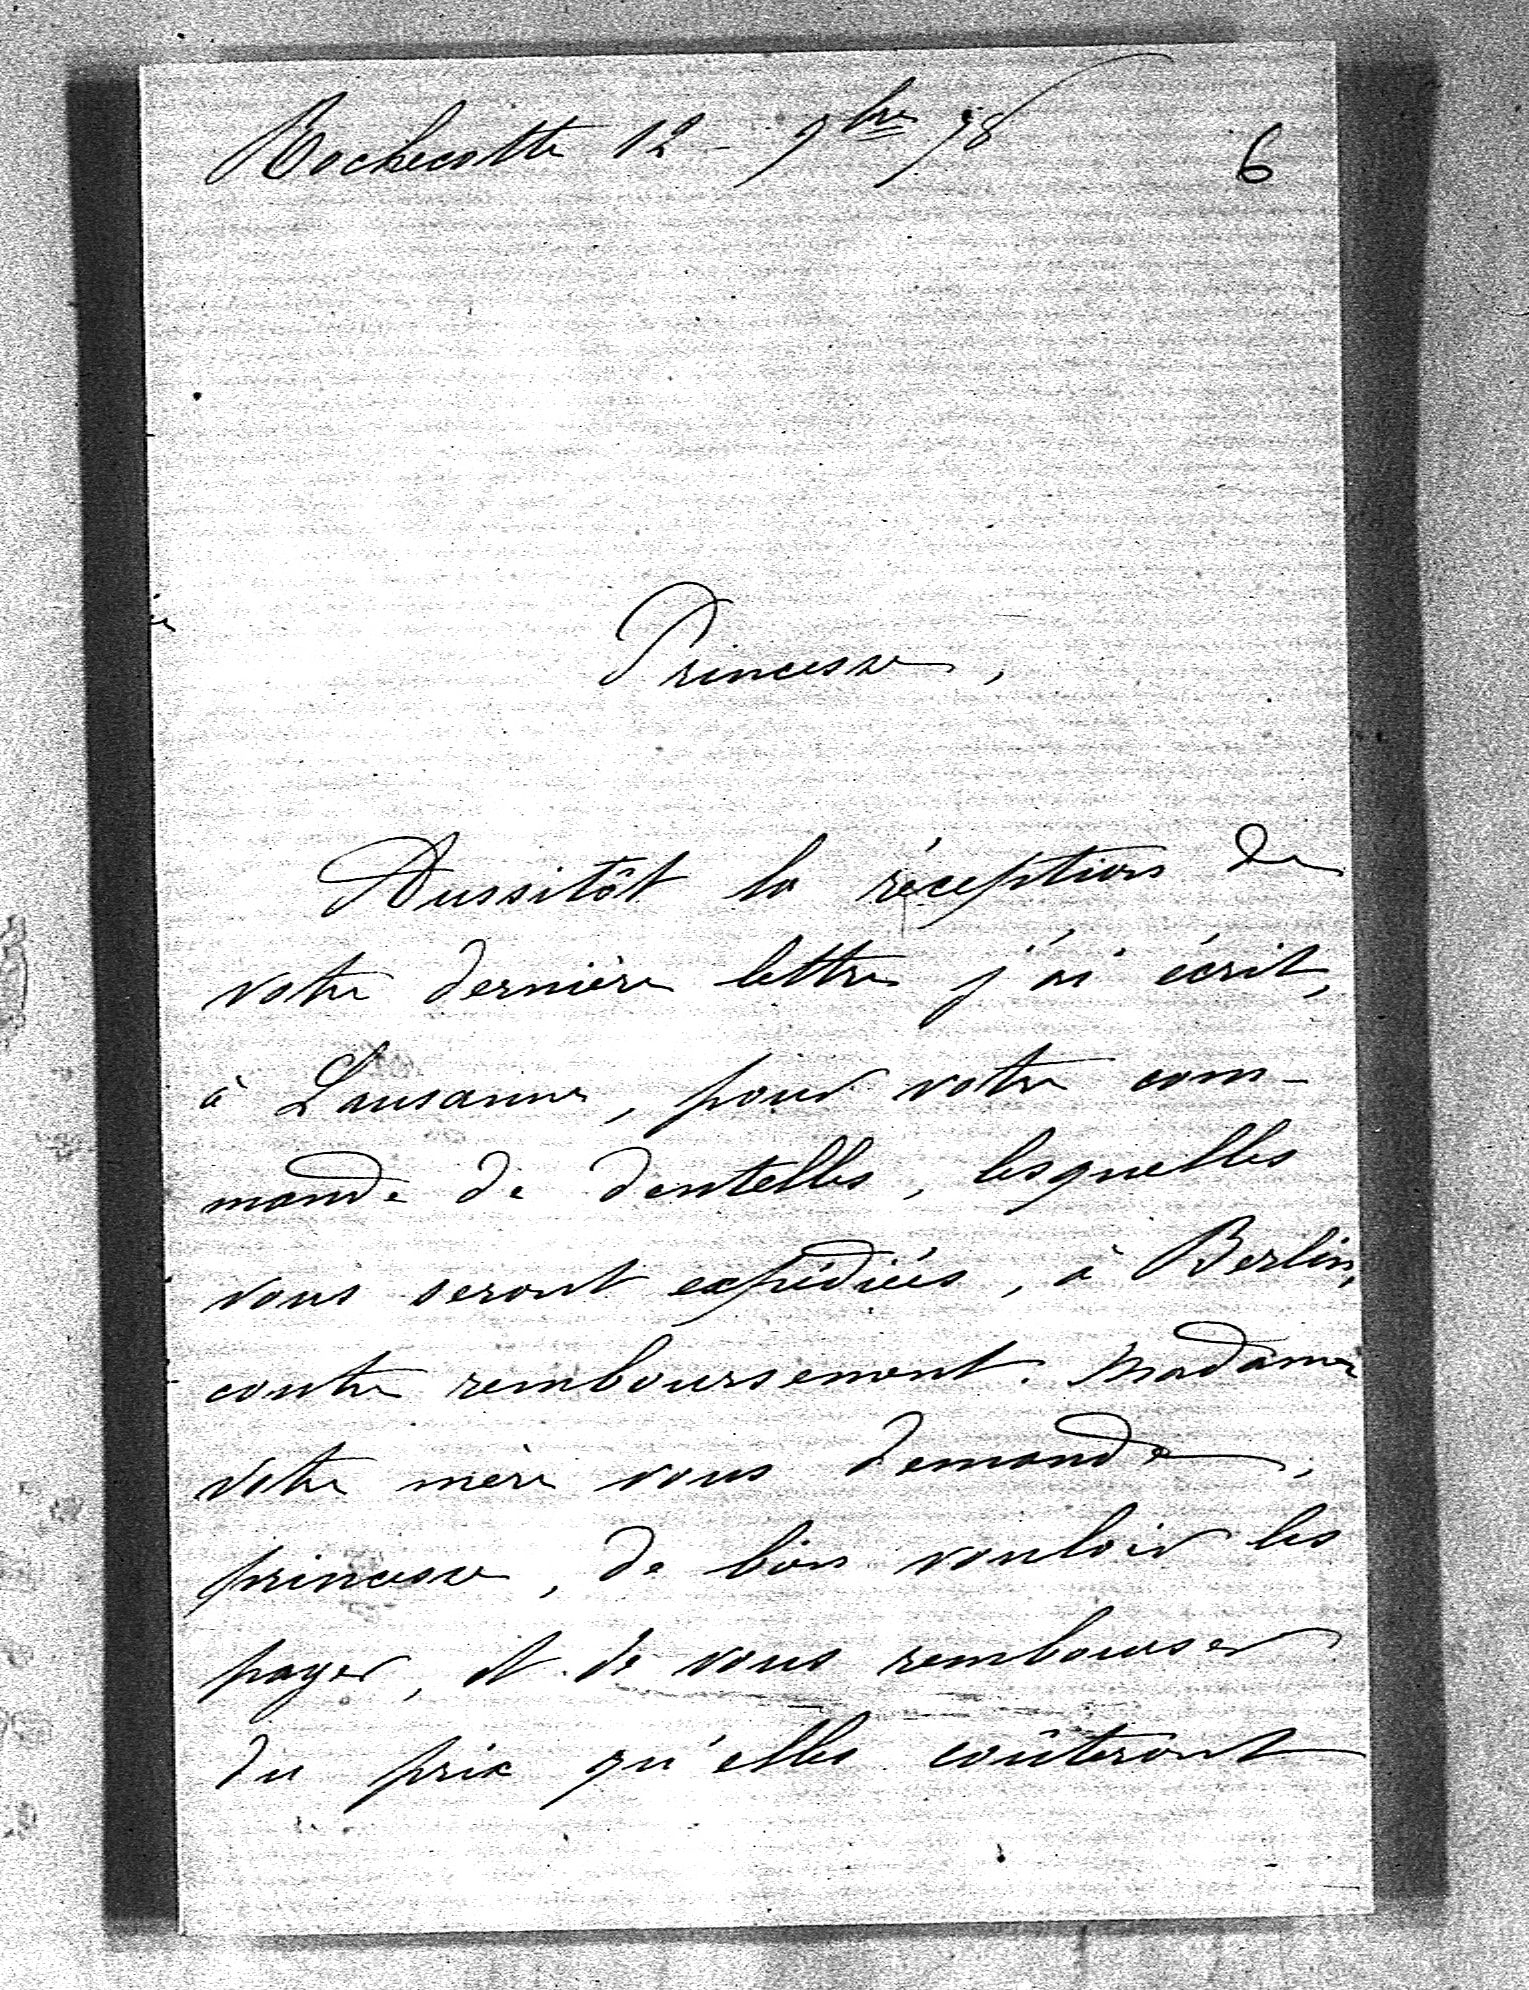 Rochecotte 12 - 9bre 78
6
Princesse,
Aussitôt la réception de
votre dernière lettre j'ai écrit,
à Lausanne, pour votre com-
mande de dentelles, lesquelles
vous seront expédiées, à Berlin,
contre remboursement. Madame
votre mère vous demande,
princesse, de bien vouloir les
payer, et de vous rembourser
du prix qu'elles coûteront